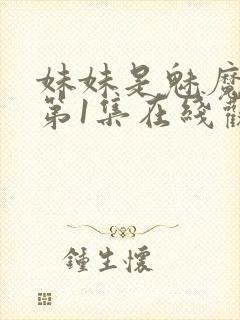 妹妹是魅魔
第1集在线观
鍾生懷